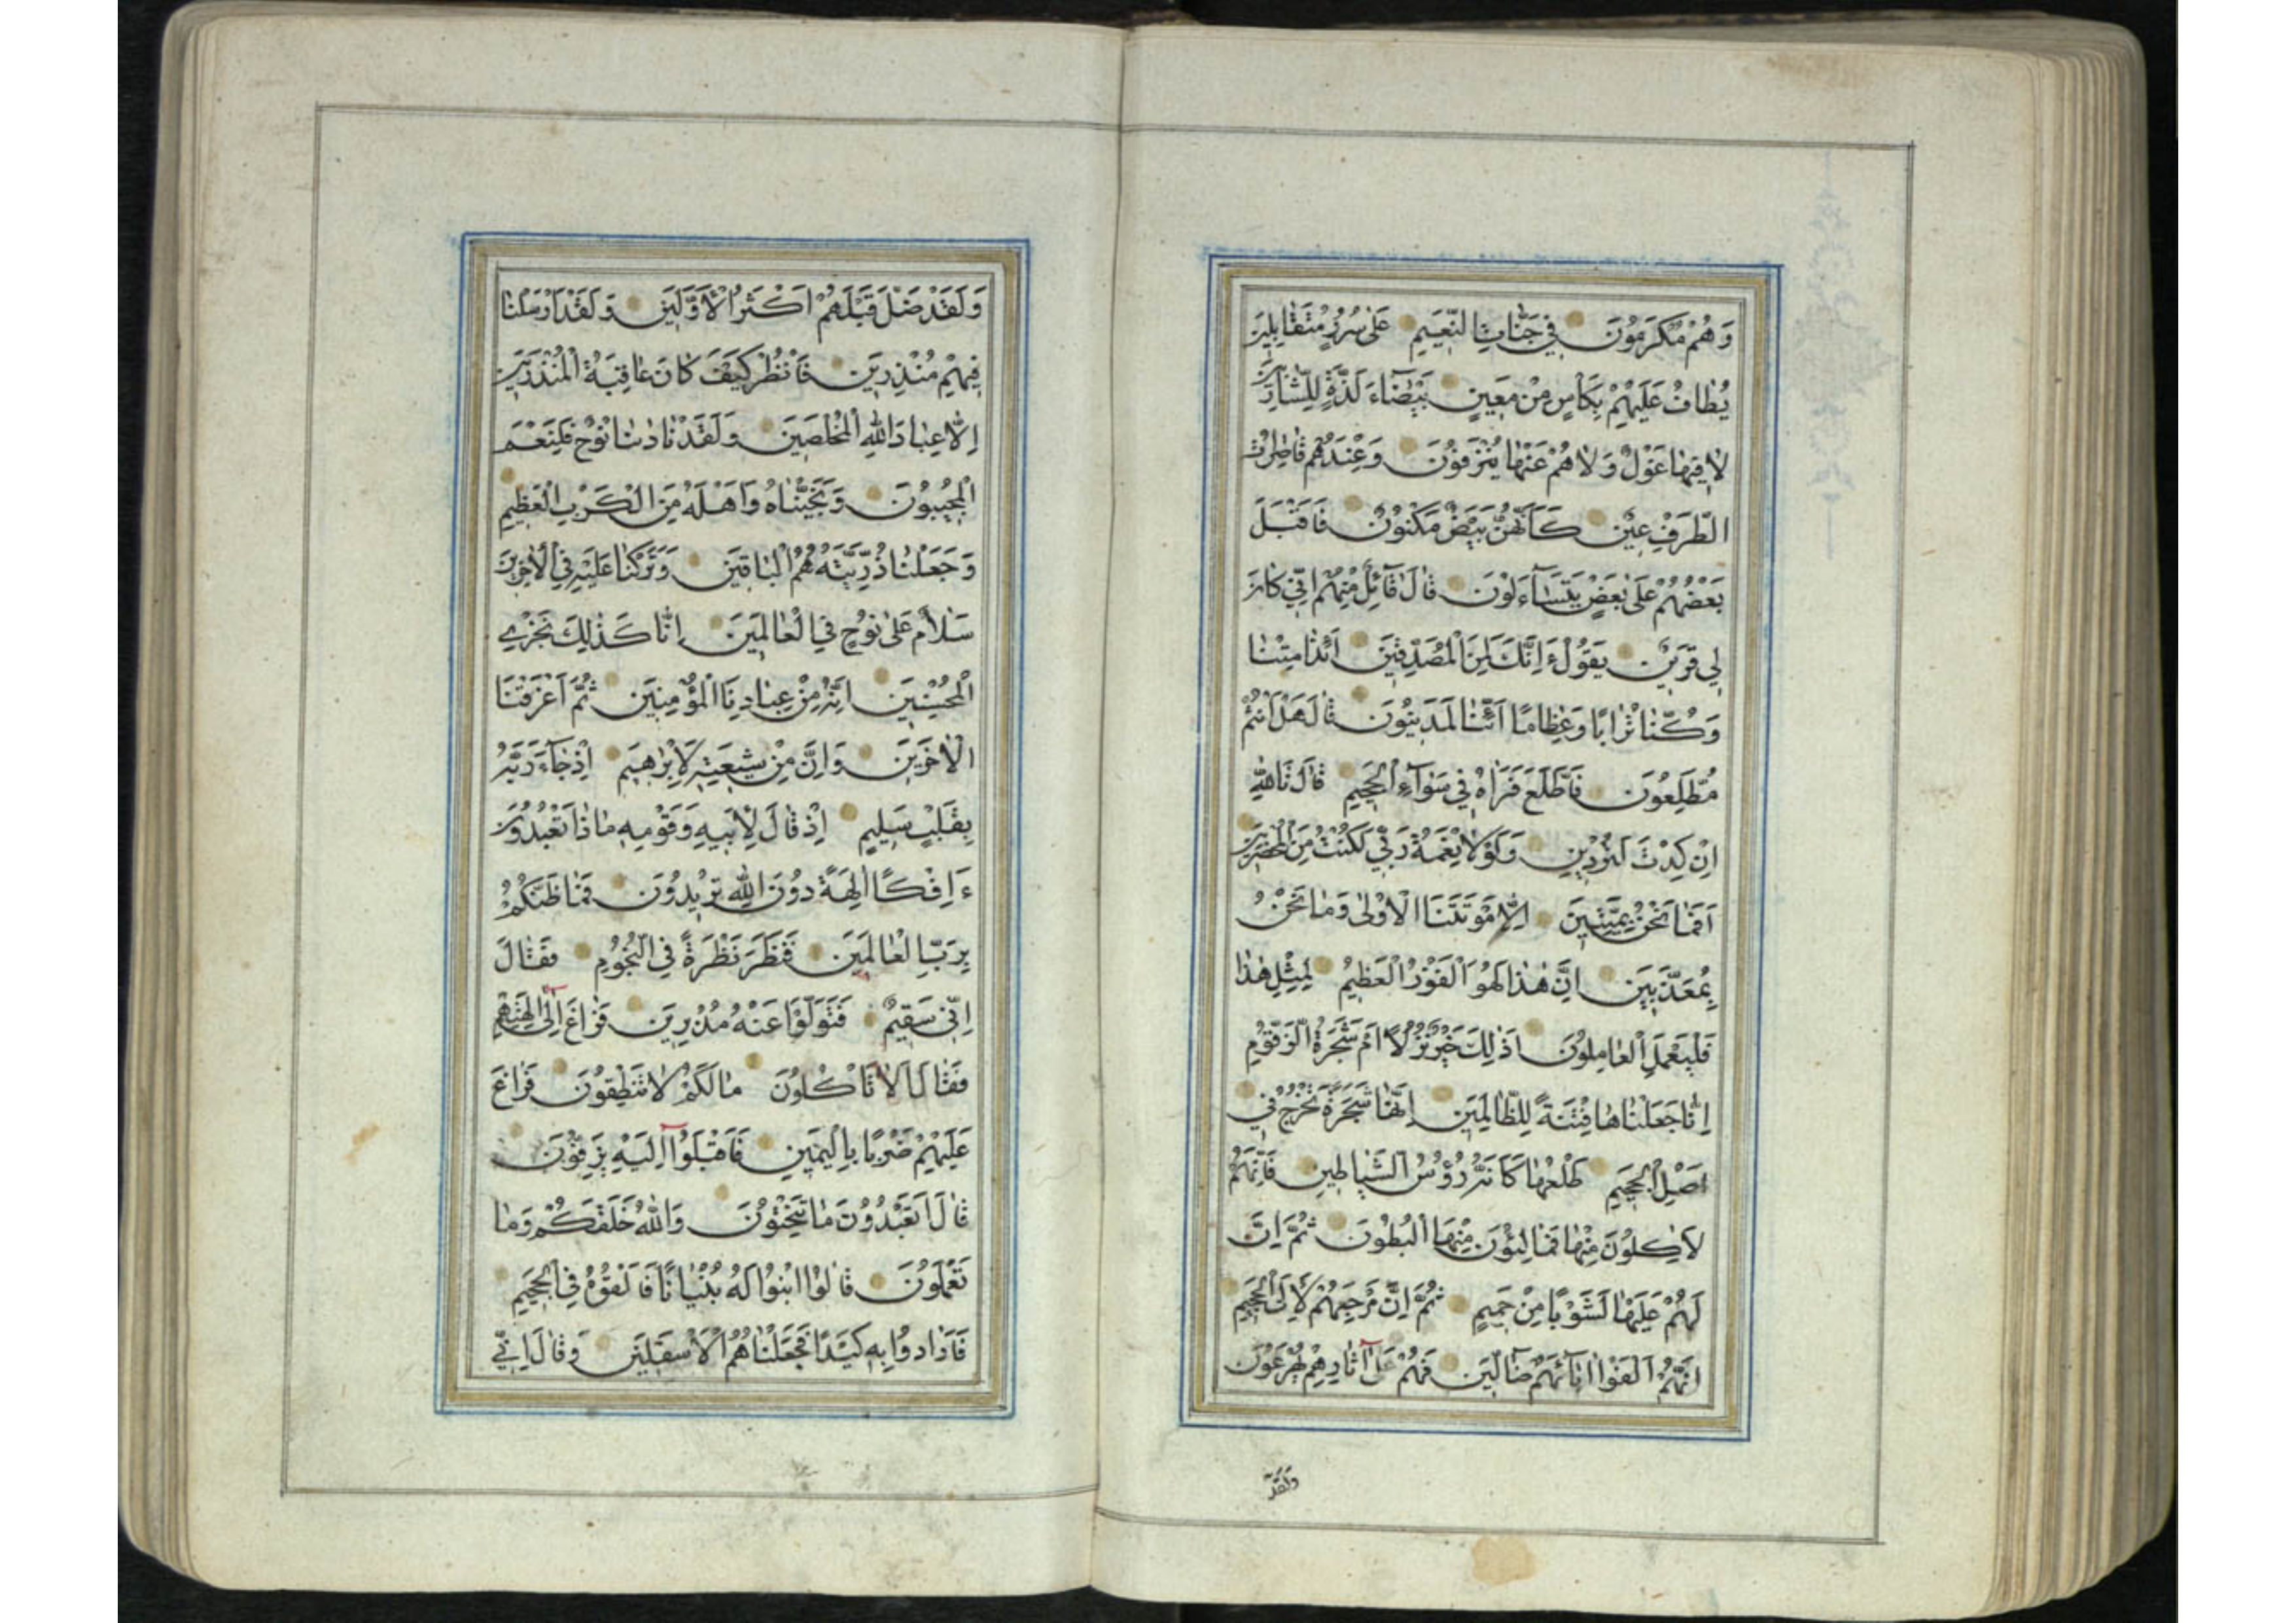 وَهُمْ مُكْرَمُونَ فِي جَنَّاتِ النَّعِيمِ عَلٰى سُرُرٍ مُتَقَابِلِينَ
يُطَافُ عَلَيْهِمْ بِكَأْسٍ مِنْ مَعِينٍ بَيْضَآءَ لَذَّةٍ لِلشَّارِبِينَ
لَا فِيهَا غَوْلٌ وَلَا هُمْ عَنْهَا يُنْزَفُونَ وَعِنْدَهُمْ قَاصِرَاتُ
الطَّرْفِ عِينٌ كَأَنَّهُنَّ بَيْضٌ مَكْنُونٌ فَاَقْبَلَ
بَعْضُهُمْ عَلٰى بَعْضٍ يَتَسَآءَلُونَ قَالَ قَآئِلٌ مِنْهُمْ اِنِّي كَانَ
لِي قَرِينٌ يَقُولُ ءَاِنَّكَ لَمِنَ الْمُصَدِّقِينَ اَئِذَا مِتْنَا
وَكُنَّا تُرَابًا وَعِظَامًا اَئِنَّا لَمَدِينُونَ قَالَ هَلْ اَنْتُمْ
مُطَّلِعُونَ فَاطَّلَعَ فَرَاٰهُ فِي سَوَآءِ الْجَحِيمِ قَالَ تَاللّٰهِ
اِنْ كِدْتَ لَتُرْدِينِ وَلَوْلَا نِعْمَةُ رَبِّي لَكُنْتُ مِنَ الْمُحْضَرِينَ
اَفَمَا نَحْنُ بِمَيِّتِينَ اِلَّا مَوْتَتَنَا الْاُولٰى وَمَا نَحْنُ
بِمُعَذَّبِينَ اِنَّ هٰذَا لَهُوَ الْفَوْزُ الْعَظِيمُ لِمِثْلِ هٰذَا
فَلْيَعْمَلِ الْعَامِلُونَ اَذٰلِكَ خَيْرٌ نُزُلًا اَمْ شَجَرَةُ الزَّقُّومِ
اِنَّا جَعَلْنَاهَا فِتْنَةً لِلظَّالِمِينَ اِنَّهَا شَجَرَةٌ تَخْرُجُ فِي
اَصْلِ الْجَحِيمِ طَلْعُهَا كَاَنَّهُ رُؤُسُ الشَّيَاطِينِ فَاِنَّهُمْ
لَاٰكِلُونَ مِنْهَا فَمَالِئُونَ مِنْهَا الْبُطُونَ ثُمَّ اِنَّ
لَهُمْ عَلَيْهَا لَشَوْبًا مِنْ حَمِيمٍ ثُمَّ اِنَّ مَرْجِعَهُمْ لَاِلَى الْجَحِيمِ
اِنَّهُمْ اَلْفَوْا اٰبَآئَهُمْ ضَآلِّينَ فَهُمْ عَلٰٓى اٰثَارِهِمْ يُهْرَعُونَ
وَلَقَدْ
وَلَقَدْ ضَلَّ قَبْلَهُمْ اَكْثَرُ الْاَوَّلِينَ وَلَقَدْ اَرْسَلْنَا
فِيهِمْ مُنْذِرِينَ فَانْظُرْ كَيْفَ كَانَ عَاقِبَةُ الْمُنْذَرِينَ
اِلَّا عِبَادَ اللّٰهِ الْمُخْلَصِينَ وَلَقَدْ نَادٰىنَا نُوحٌ فَلَنِعْمَ
الْمُجِيبُونَ وَنَجَّيْنَاهُ وَاَهْلَهُ مِنَ الْكَرْبِ الْعَظِيمِ
وَجَعَلْنَا ذُرِّيَّتَهُ هُمُ الْبَاقِينَ وَتَرَكْنَا عَلَيْهِ فِي الْاٰخِرِينَ
سَلَامٌ عَلٰى نُوحٍ فِي الْعَالَمِينَ اِنَّا كَذٰلِكَ نَجْزِي
الْمُحْسِنِينَ اِنَّهُ مِنْ عِبَادِنَا الْمُؤْمِنِينَ ثُمَّ اَغْرَقْنَا
الْاٰخَرِينَ وَاِنَّ مِنْ شِيعَتِهِ لَاِبْرٰهِيمَ اِذْ جَآءَ رَبَّهُ
بِقَلْبٍ سَلِيمٍ اِذْ قَالَ لِاَبِيهِ وَقَوْمِهِ مَاذَا تَعْبُدُونَ
ءَاِفْكًا اٰلِهَةً دُونَ اللّٰهِ تُرِيدُونَ فَمَا ظَنُّكُمْ
بِرَبِّ الْعَالَمِينَ فَنَظَرَ نَظْرَةً فِي النُّجُومِ فَقَالَ
اِنِّي سَقِيمٌ فَتَوَلَّوْا عَنْهُ مُدْبِرِينَ فَرَاغَ اِلٰٓى اٰلِهَتِهِمْ
فَقَالَ اَلَا تَأْكُلُونَ مَا لَكُمْ لَا تَنْطِقُونَ فَرَاغَ
عَلَيْهِمْ ضَرْبًا بِالْيَمِينِ فَاَقْبَلُوٓا اِلَيْهِ يَزِفُّونَ
قَالَ اَتَعْبُدُونَ مَا تَنْحِتُونَ وَاللّٰهُ خَلَقَكُمْ وَمَا
تَعْمَلُونَ قَالُوا ابْنُوا لَهُ بُنْيَانًا فَاَلْقُوهُ فِي الْجَحِيمِ
فَاَرَادُوا بِهِ كَيْدًا فَجَعَلْنَاهُمُ الْاَسْفَلِينَ وَقَالَ اِنِّي